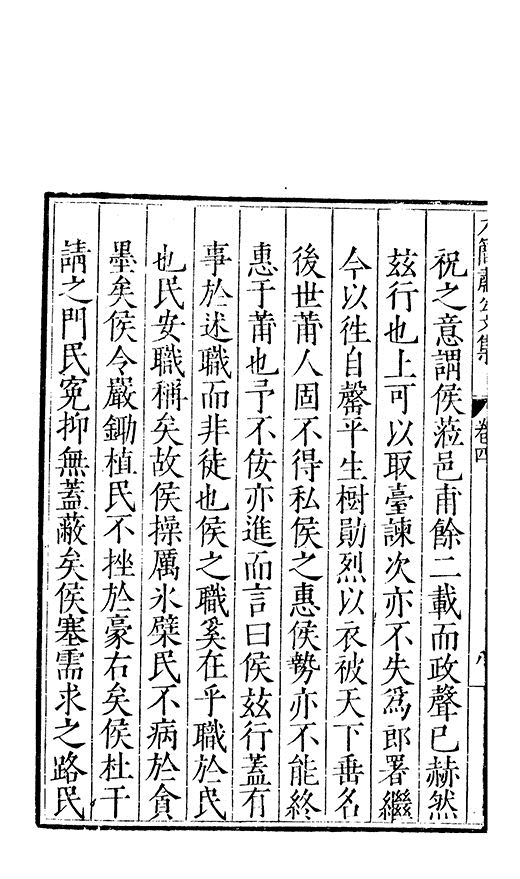 簡肅公文集
卷四
八
祝之意謂侯蒞邑甫餘二載而政聲已赫然
玆行也上可以取臺諫次亦不失爲郎署繼
今以徃自罄平生樹勛烈以衣被天下垂名
後世莆人固不得私侯之惠侯勢亦不能終
惠于莆也予不佞亦進而言曰侯玆行蓋有
事於述職而非徒也侯之職奚在乎職於民
也民安職稱矣故侯操厲氷檗民不病於貪
墨矣侯令嚴鋤植民不挫於豪右矣侯杜干
請之門民寃抑無蓋蔽矣侯塞需求之路民